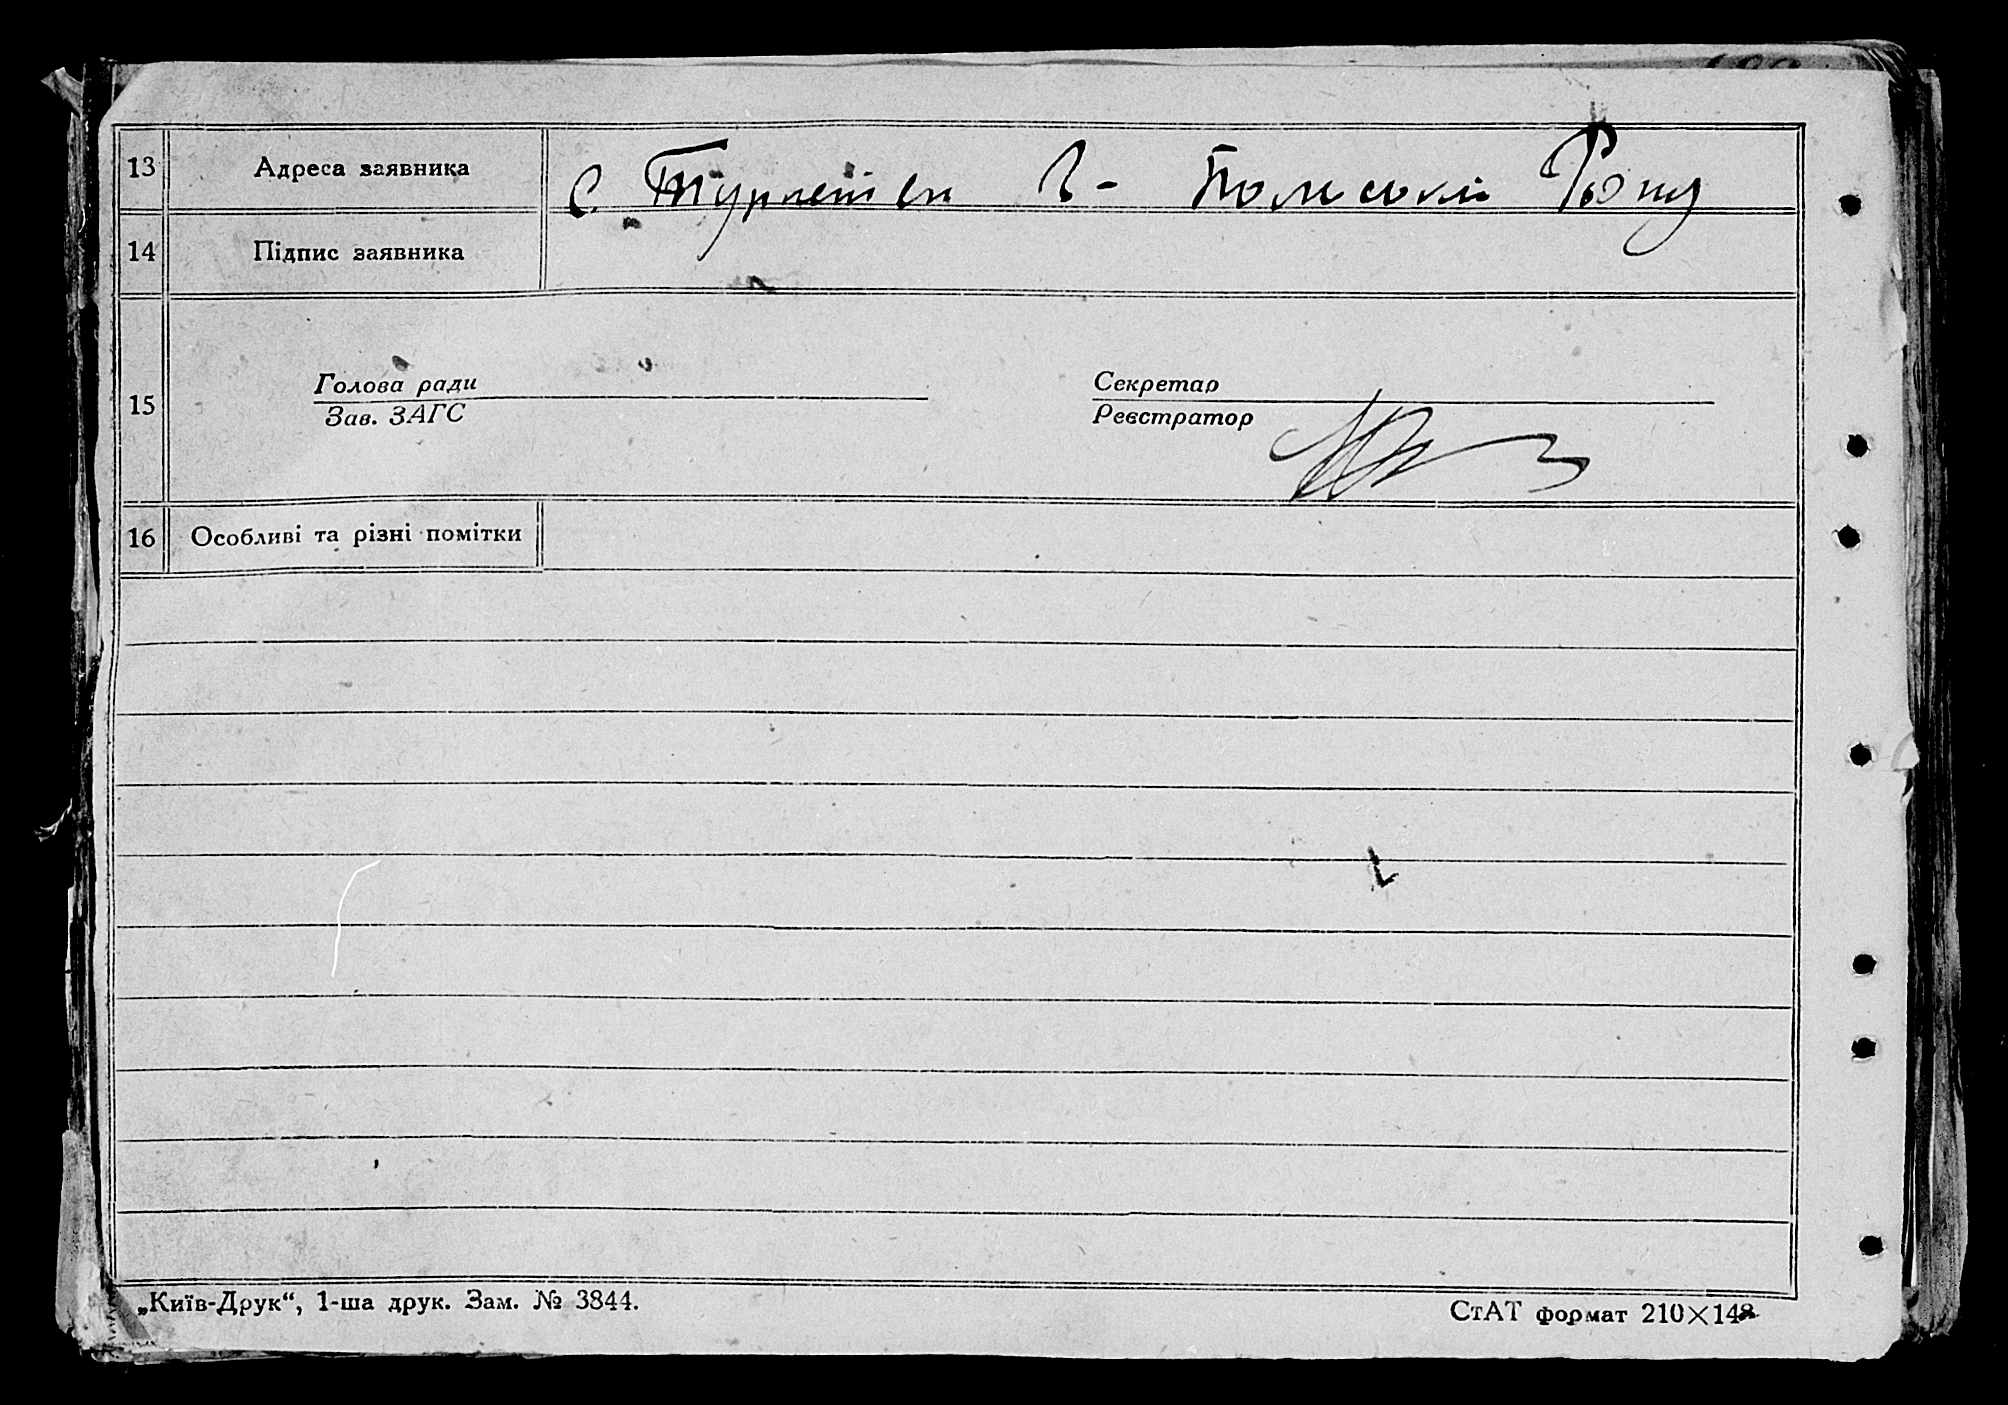 13 Адреса заявника с.
14 Підпис заявника
Голова ради Секретар
15
Зав. ЗАГС Реєстратор
16 Особливі та різні помітки
„Київ-Друк“, 1-ша друк. Зам. № 3844. СтАТ формат 210×148